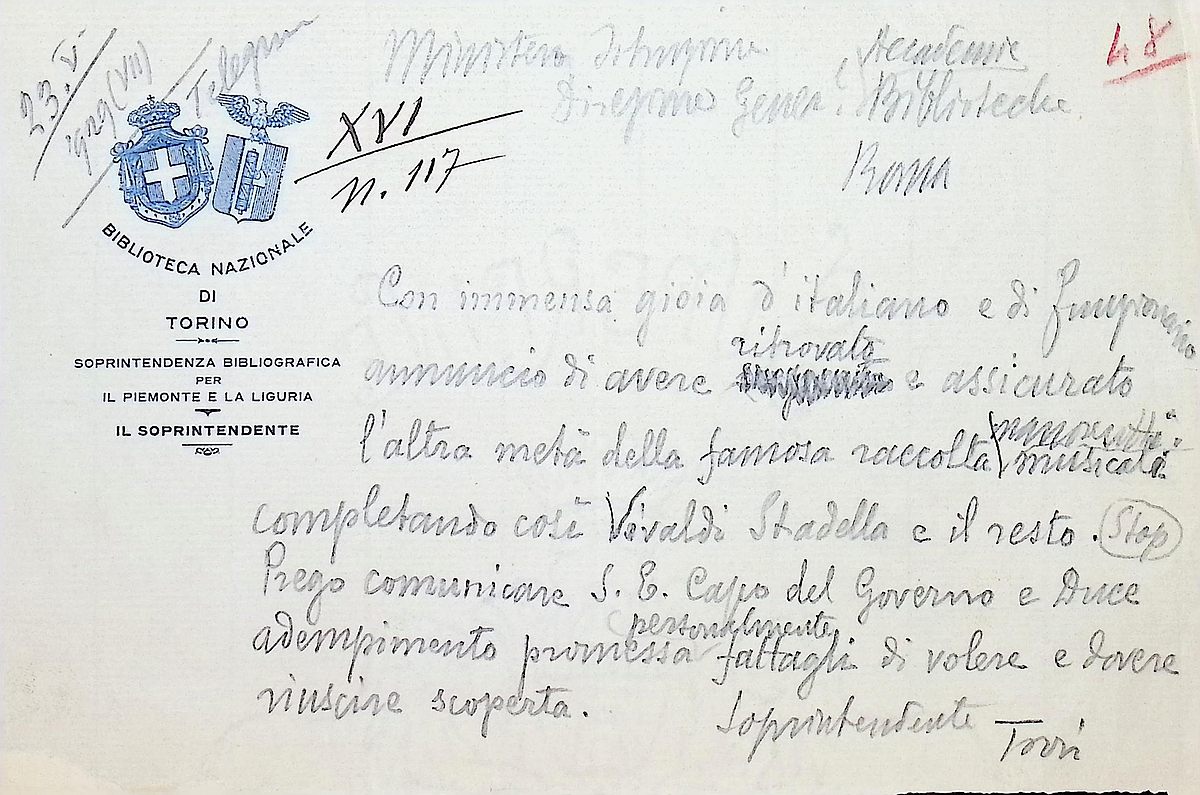 23. V.
1929 (VII)
Telegramma
48
Ministero Istruzione
Direzione Gener. Accademie
Biblioteche
Roma
XVI
n. 117
BIBLIOTECA NAZIONALE
DI
TORINO
SOPRINTENDENZA BIBLIOGRAFICA
PER
IL PIEMONTE E LA LIGURIA
IL SOPRINTENDENTE
Con immensa gioia d'italiano e di funzionario
annuncio di avere ritrovato e assicurato
l'altra metà della famosa raccolta manoscritti musicali
completando così Vivaldi Stadella e il resto. Stop
Prego comunicare S. E. Capo del Governo e Duce
adempimento promessa personalmente fattagli di volere e dovere
riuscire scoperta.
Soprintendente Torri